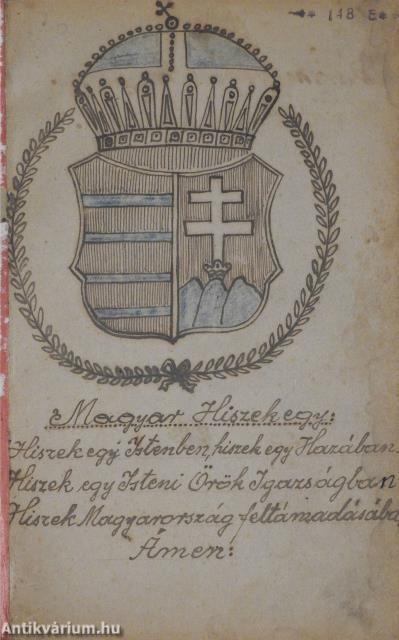 148 E
Magyar Hiszekegy:
Hiszek egy Istenben, hiszek egy Hazában.
Hiszek egy Isteni Örök Igazságban
Hiszek Magyarország feltámadásába
Ámen:
Antikvárium.hu